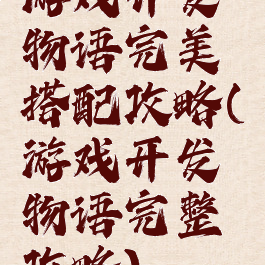 游戏开发
物语完美
搭配攻略(
游戏开发
物语完整
攻略)